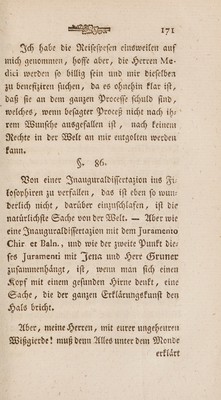 171
Ich habe die Reisespesen einsweilen auf
mich genommen, hoffe aber, die Herren Me-
dici werden so billig sein und mir dieselben
zu benefiziren suchen, da es ohnehin klar ist,
daß sie an dem ganzen Processe schuld sind,
welches, wenn besagter Proceß nicht nach ih-
rem Wunsche ausgefallen ist, nach keinem
Rechte in der Welt an mir entgolten werden
kann.
§. 86.
Von einer Inauguraldissertazion ins Fi-
losophiren zu verfallen, das ist eben so wun-
derlich nicht, darüber einzuschlafen, ist die
natürlichste Sache von der Welt. — Aber wie
eine Inauguraldissertazion mit dem Juramento
Chir et Baln., und wie der zweite Punkt die-
ses Juramenti mit Jena und Herr Gruner
zusammenhängt, ist, wenn man sich einen
Kopf mit einem gesunden Hirne denkt, eine
Sache, die der ganzen Erklärungskunst den
Hals bricht.
Aber, meine Herren, mit eurer ungeheuren
Wißgierde! muß denn Alles unter dem Monde
erklärt